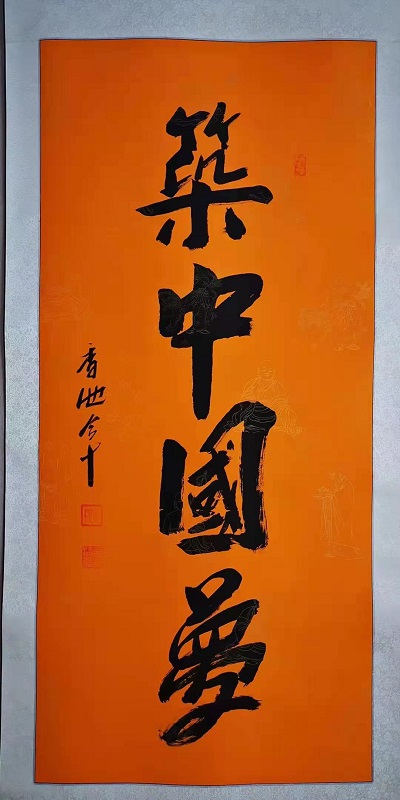 築中國夢